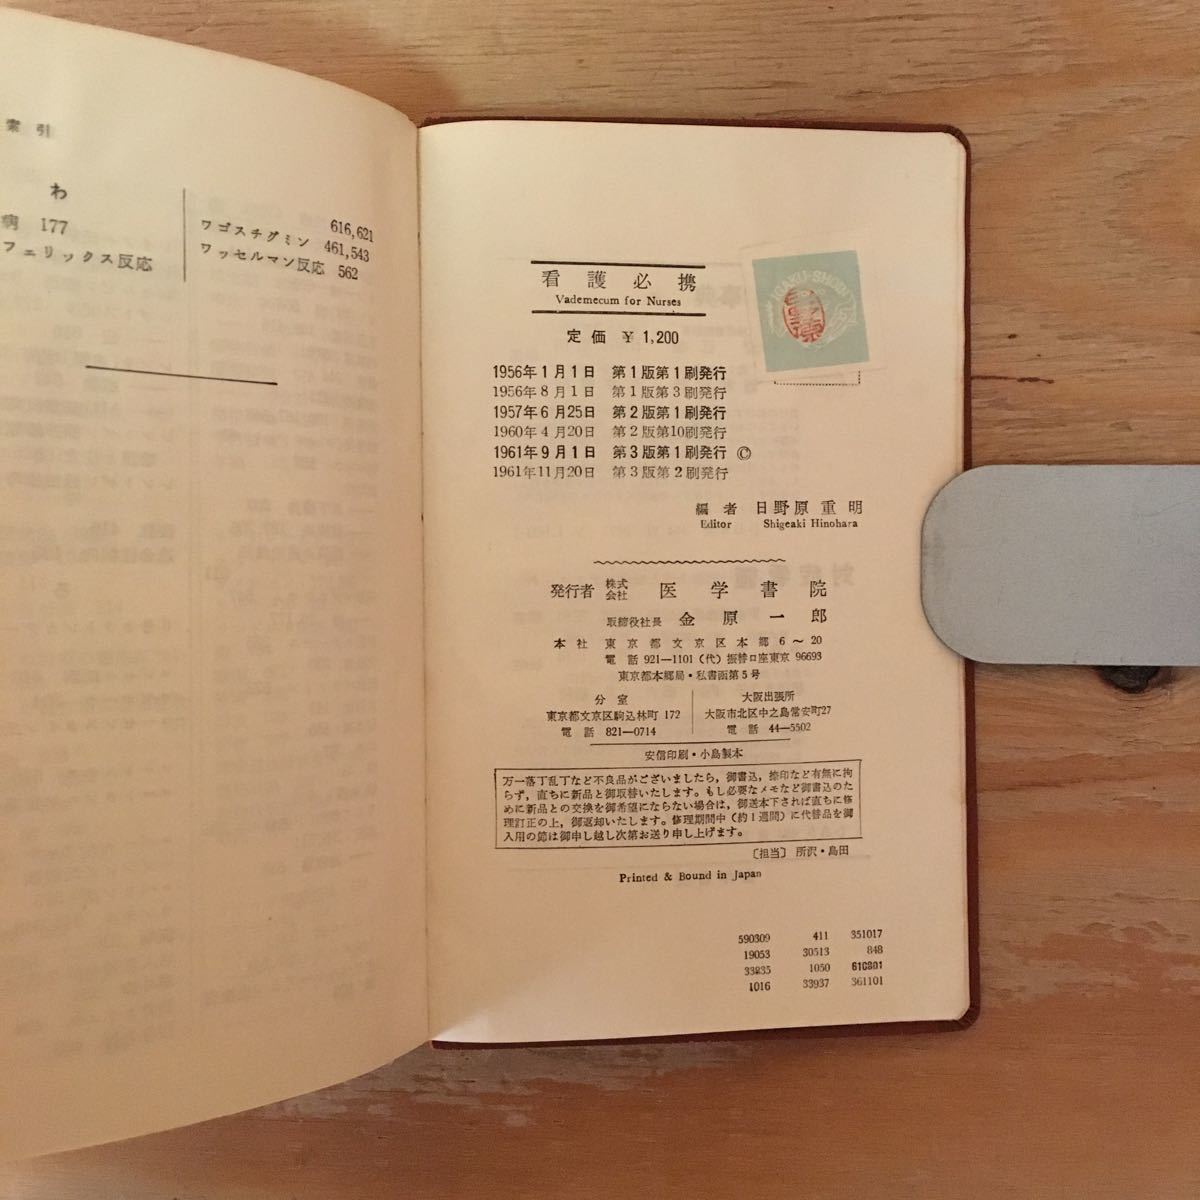 索引
わ
病 177
フェリックス反応
616,621
ワゴスチグミン 461,543
ワッセルマン反応 562
看護必携
Vademecum for Nurses
定価 ¥ 1,200
IGAKU-SHOIN
1956年1月1日 第1版第1刷発行
1956年8月1日 第1版第3刷発行
1957年6月25日 第2版第1刷発行
1960年4月20日 第2版第10刷発行
1961年9月1日 第3版第1刷発行 ©
1961年11月20日 第3版第2刷発行
編者 日野原重明
Editor Shigeaki Hinohara
発行者 株式会社 医学書院
取締役社長 金原一郎
本社 東京都文京区本郷6〜20
電話 921—1101(代)振替口座東京 96693
東京都本郷局・私書函第5号
分室
東京都文京区駒込林町 172
電話 821—0714
大阪出張所
大阪市北区中之島常安町27
電話 44—5502
安信印刷・小島製本
万一落丁乱丁など不良品がございましたら,御書込,捺印など有無に拘
らず,直ちに新品と御取替いたします。もし必要なメモなど御書込のた
めに新品との交換を御希望にならない場合は,御送本下されば直ちに修
理訂正の上,御返却いたします。修理期間中(約1週間)に代替品を御
入用の節は御申し越し次第お送り申し上げます。
〔担当〕 所沢・島田
Printed & Bound in Japan
590309 411 351017
19053 30513 848
33835 1050 610801
1016 33937 361101